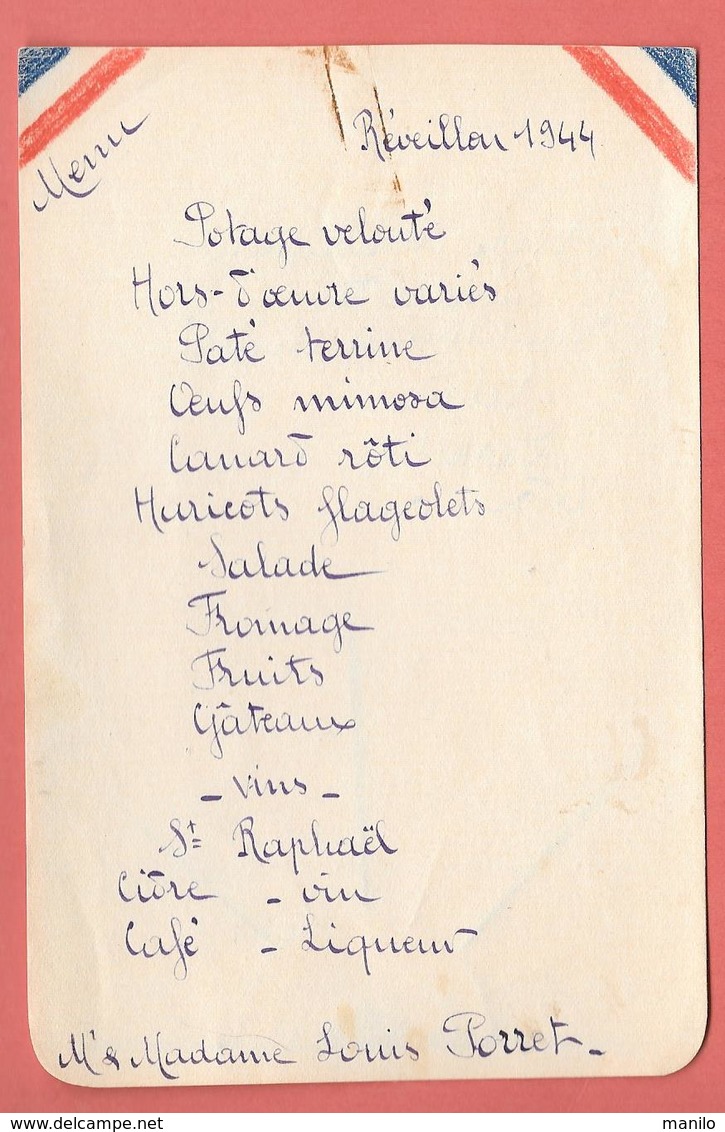 Menu
Réveillon 1944
Potage velouté
Hors-d'œuvre variés
Paté terrine
Œufs mimosa
Canard rôti
Haricots flageolets
Salade
Fromage
Fruits
Gâteaux
- Vins -
St Raphaël
Cidre - vin
Café - Liqueur
Mr & Madame Louis Porret -
manilo